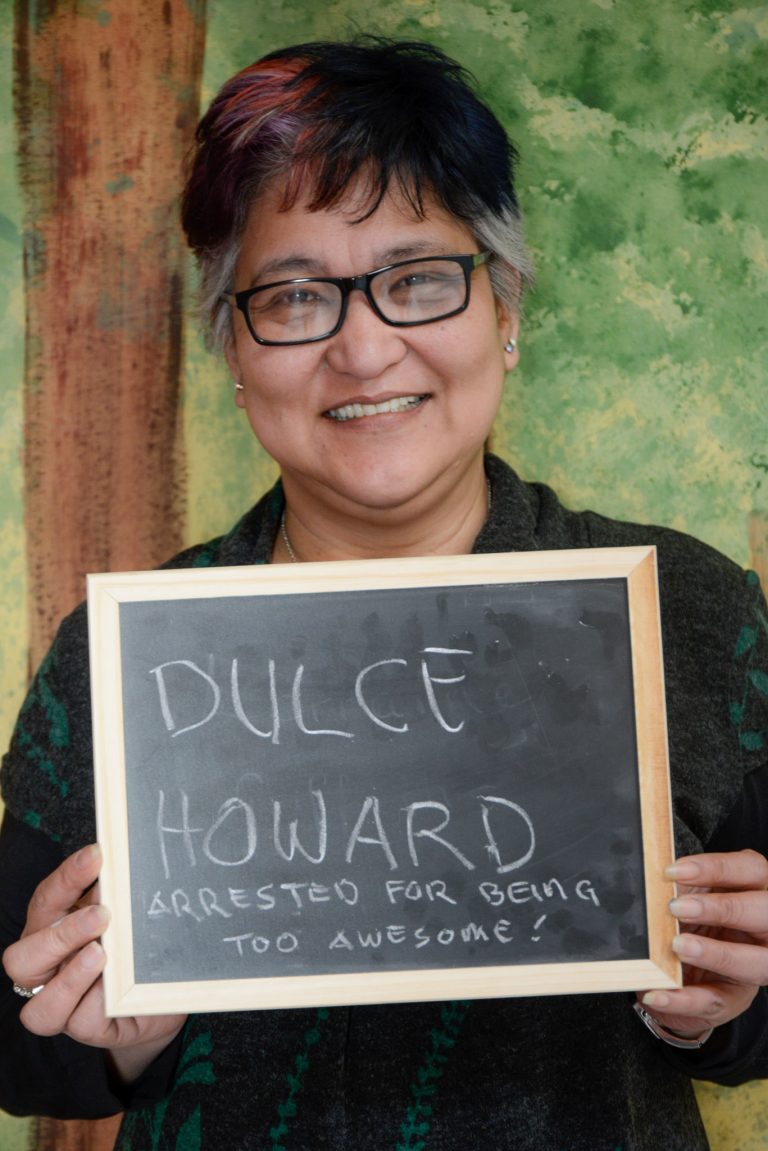 DULCE
HOWARD
ARRESTED FOR BEING
TOO AWESOME!